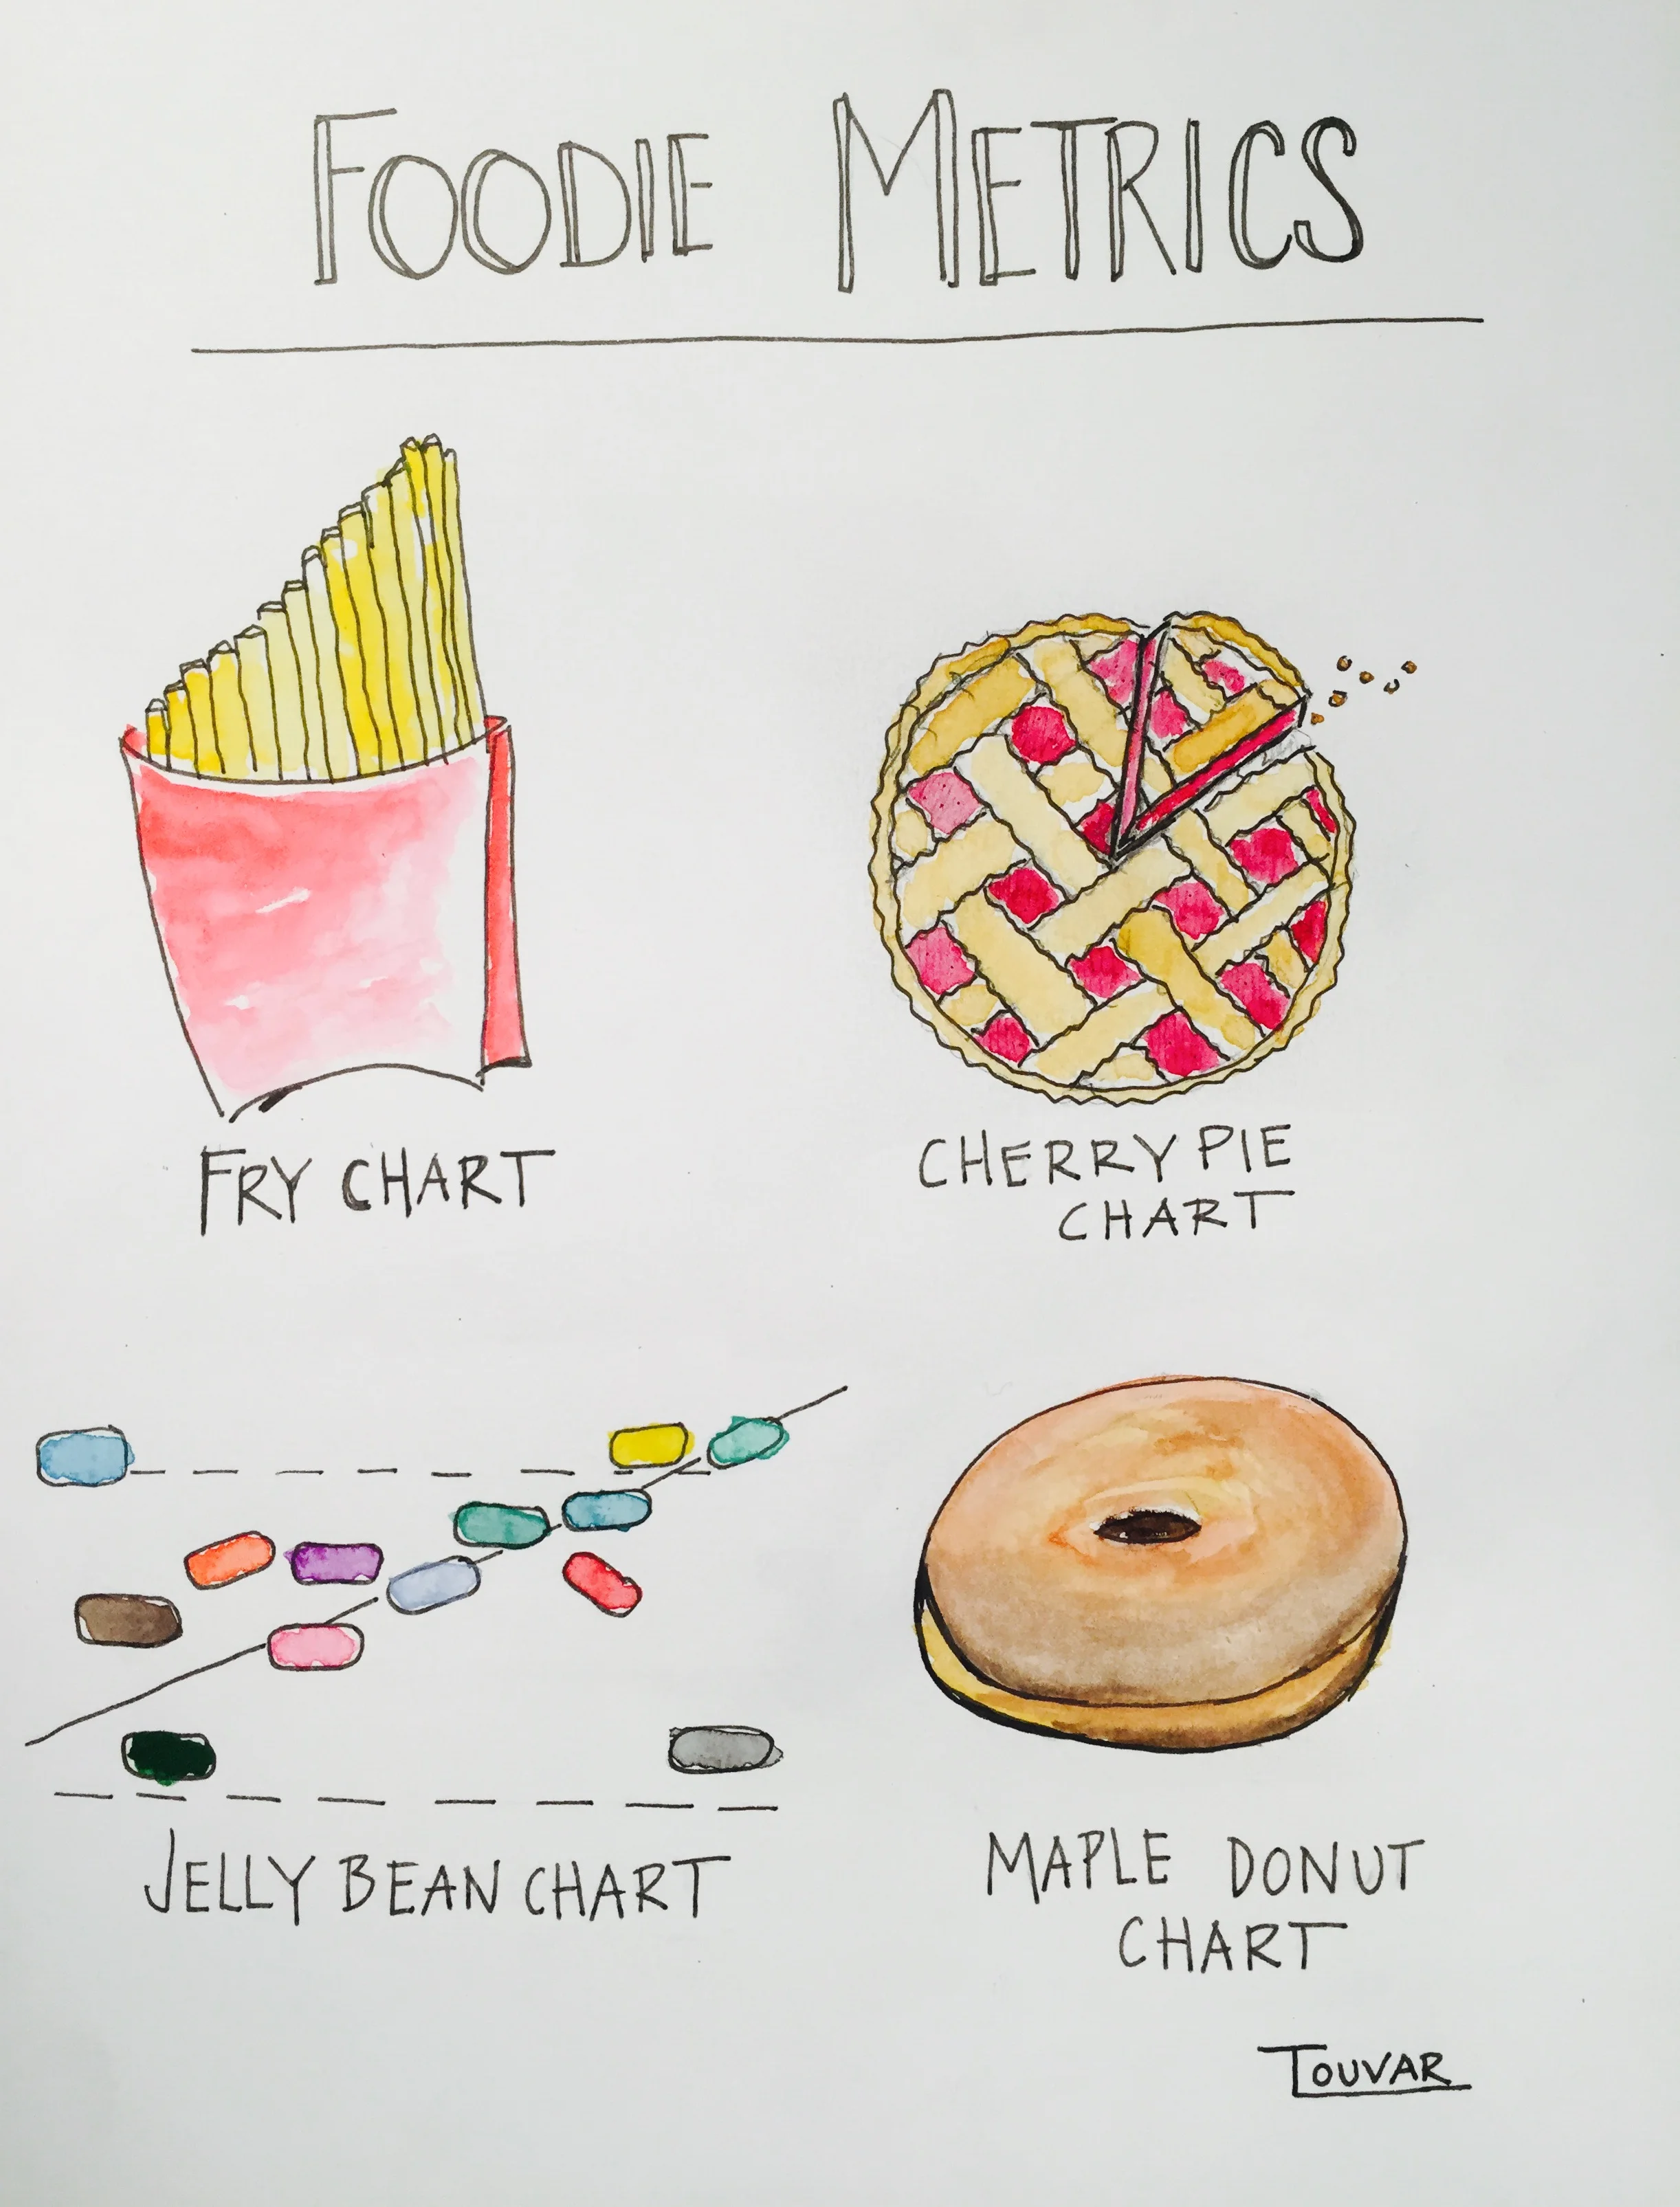 FOODIE METRICS
FRY CHART
CHERRY PIE
CHART
JELLY BEAN CHART
MAPLE DONUT
CHART
TOUVAR